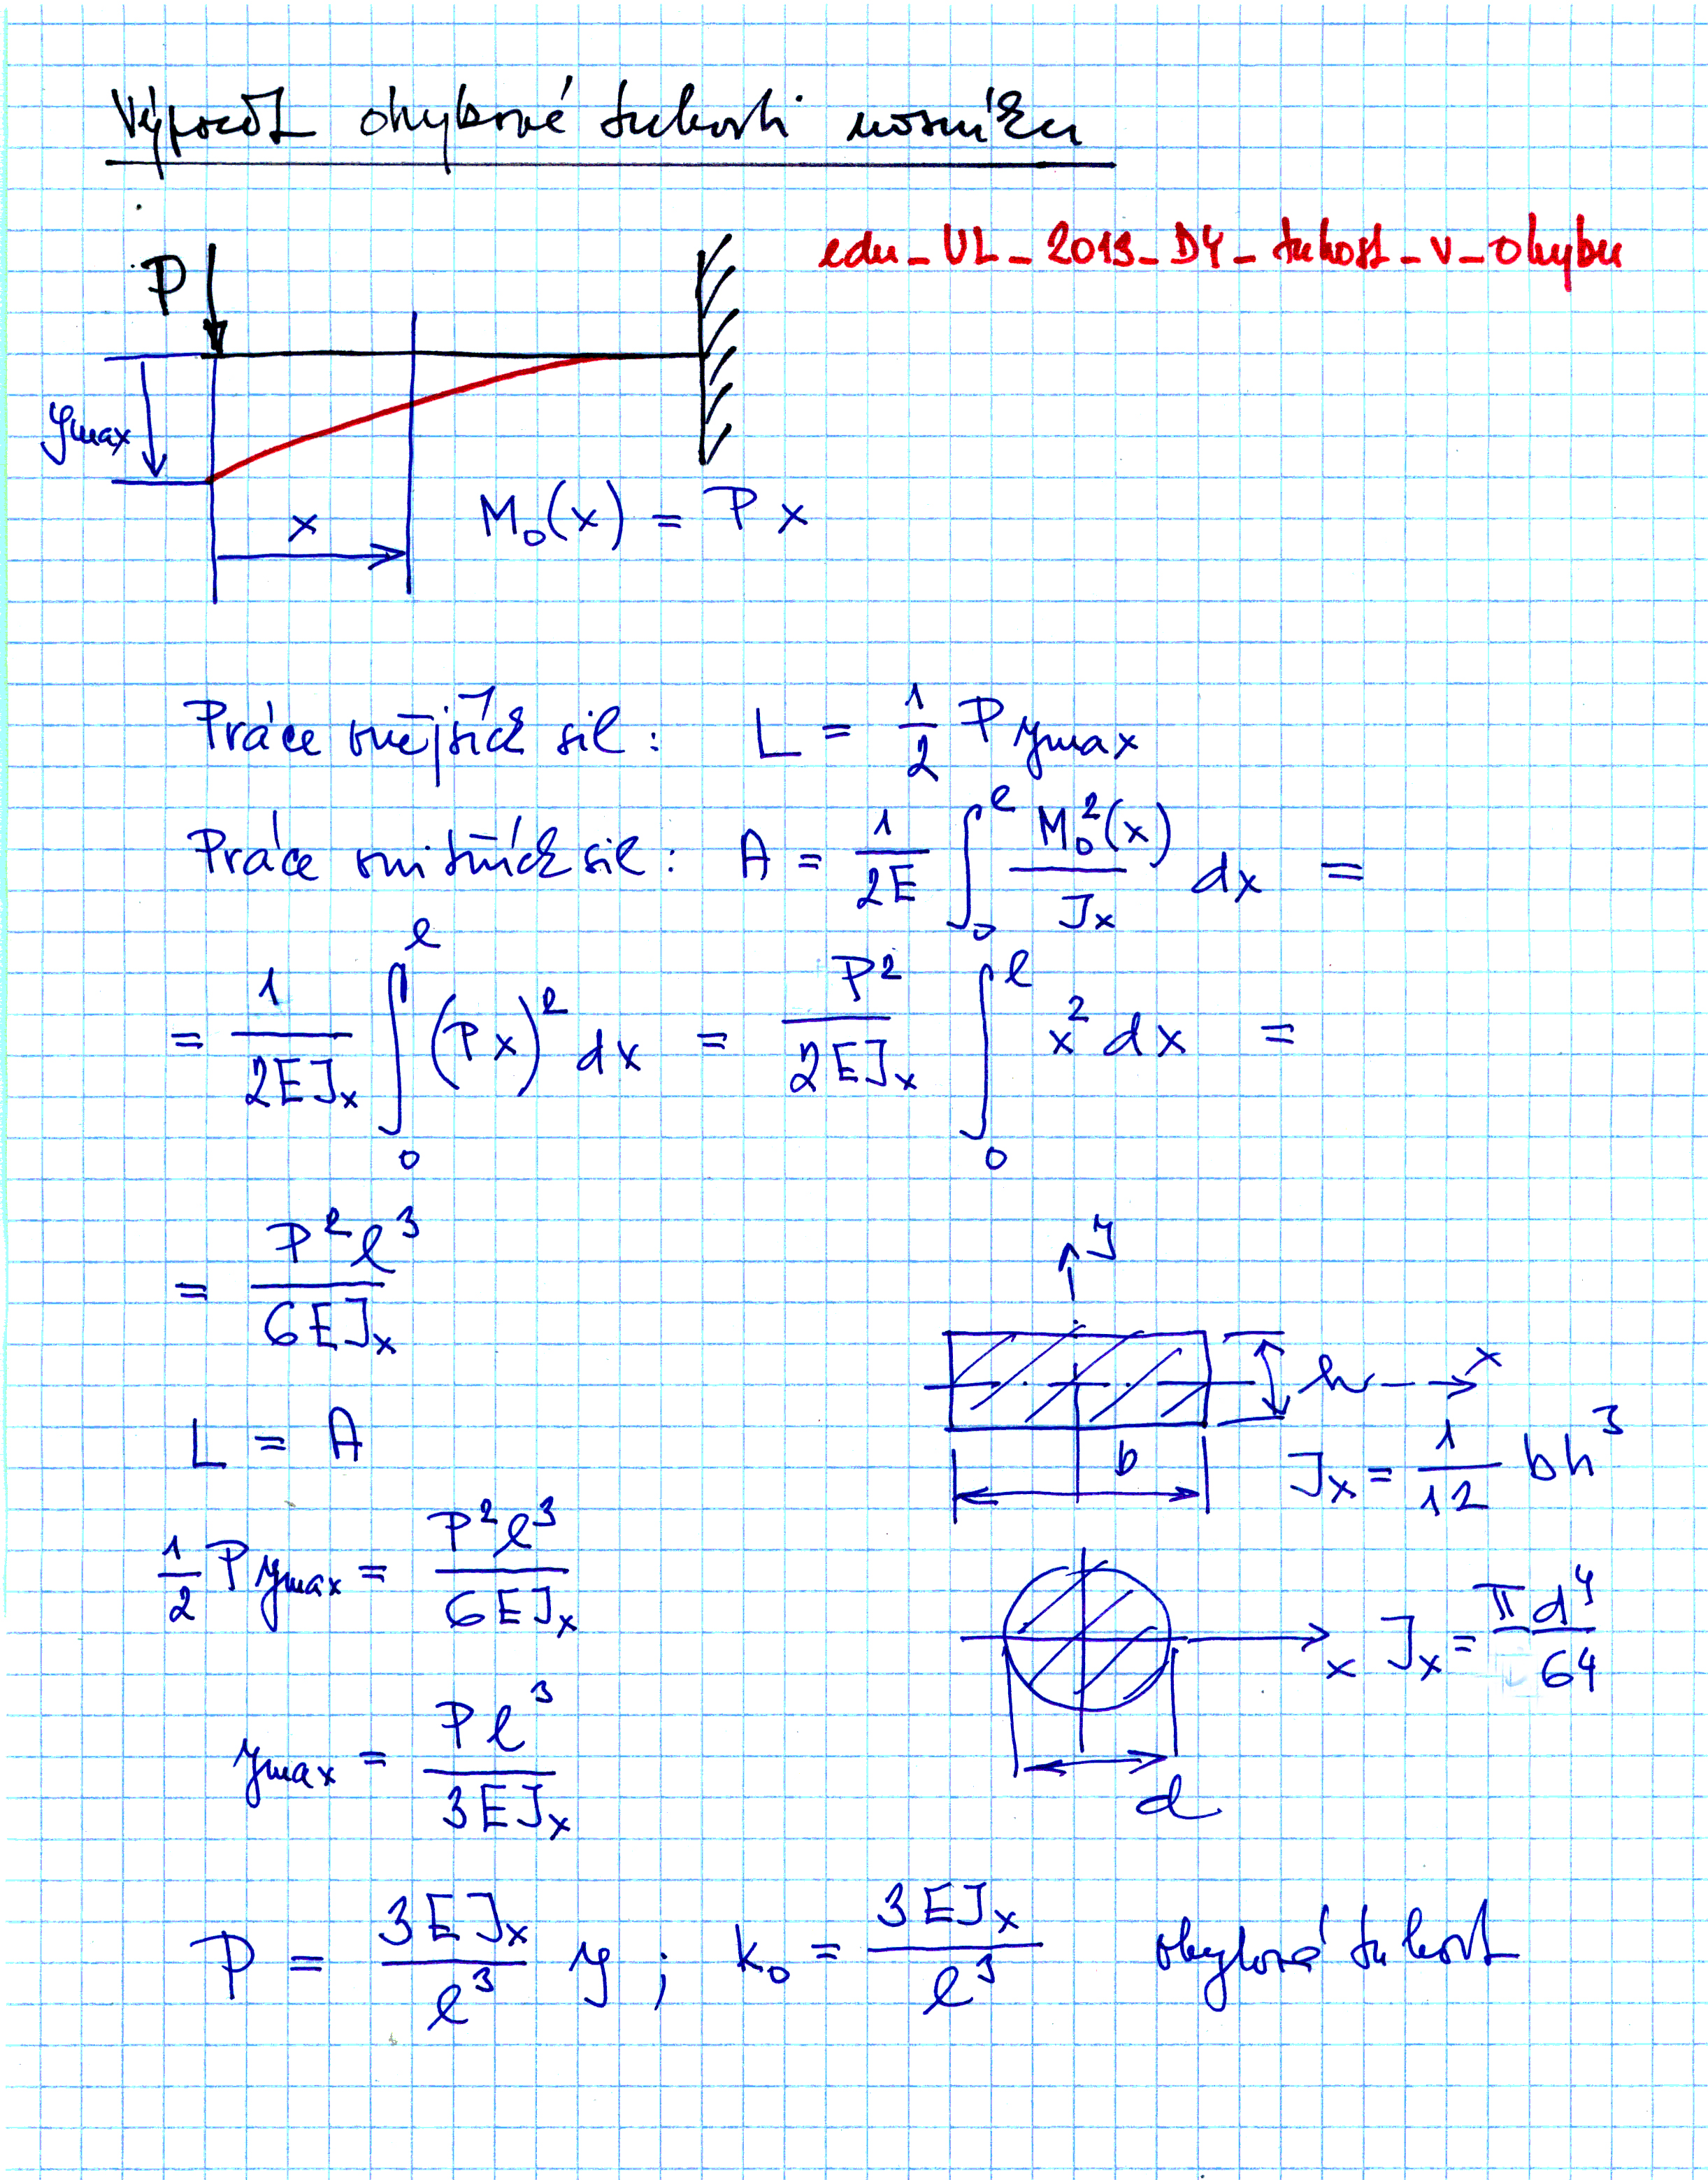 Výpočet ohybové tuhosti nosníku
edu_UL_2013_D4_tuhost_v_ohybu
P
y_max
x
M_o(x) = P x
Práce vnějších sil: L = 1/2 P y_max
Práce vnitřních sil: A = 1/(2E) ∫_0^l M_o^2(x)/J_x dx =
= 1/(2EJ_x) ∫_0^l (Px)^2 dx = P^2/(2EJ_x) ∫_0^l x^2 dx =
= P^2 l^3/(6EJ_x)
y
h
x
L = A
b
J_x = 1/12 bh^3
1/2 P y_max = P^2 l^3/(6EJ_x)
x
J_x = πd^4/64
y_max = P l^3/(3EJ_x)
d
P = 3EJ_x/l^3 y ; k_o = 3EJ_x/l^3 ohybová tuhost